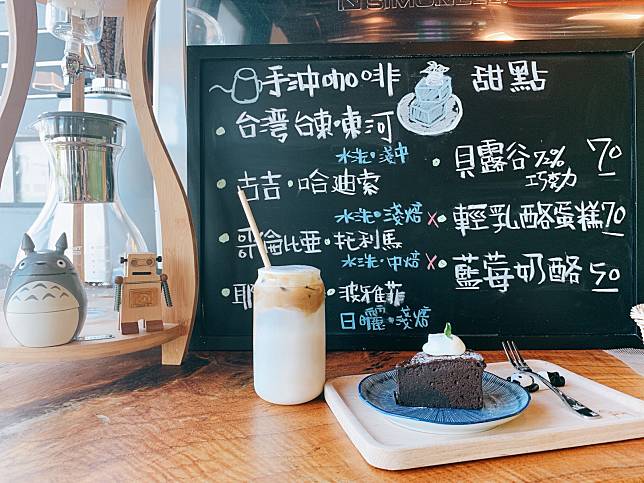 手沖咖啡
台灣台東·東河
水洗·淺中
吉吉·哈迪索
水洗·淺焙
哥倫比亞·托利馬
水洗·中焙
耶
波雅菲
日曬·淺焙
甜點
貝露谷72% 70
巧克力
x 輕乳酪蛋糕 70
x 藍莓奶酪 50